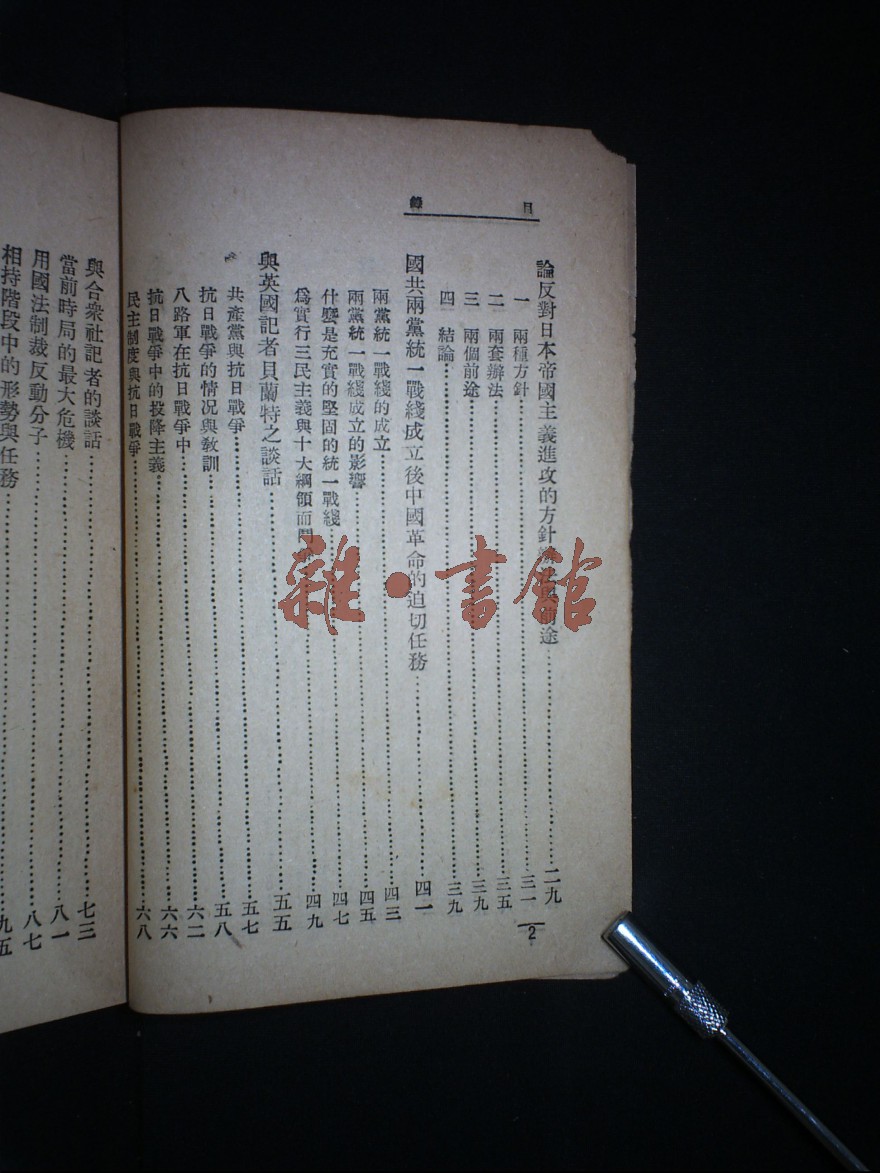 目錄
論反對日本帝國主義進攻的方針辦法與前途……二九
一 兩種方針……三一
二 兩套辦法……三五
三 兩個前途……三九
四 結論……三九
國共兩黨統一戰綫成立後中國革命的迫切任務……四一
兩黨統一戰綫的成立……四三
兩黨統一戰綫成立的影響……四五
什麼是充實的堅固的統一戰綫……四七
爲實行三民主義與十大綱領而鬥……四九
與英國記者貝蘭特之談話……五五
共產黨與抗日戰爭……五七
抗日戰爭的情況與敎訓……五八
八路軍在抗日戰爭中……六二
抗日戰爭中的投降主義……六六
民主制度與抗日戰爭……六八
2
與合衆社記者的談話……七三
當前時局的最大危機……八一
用國法制裁反動分子……八七
相持階段中的形勢與任務……九五
雜·書館